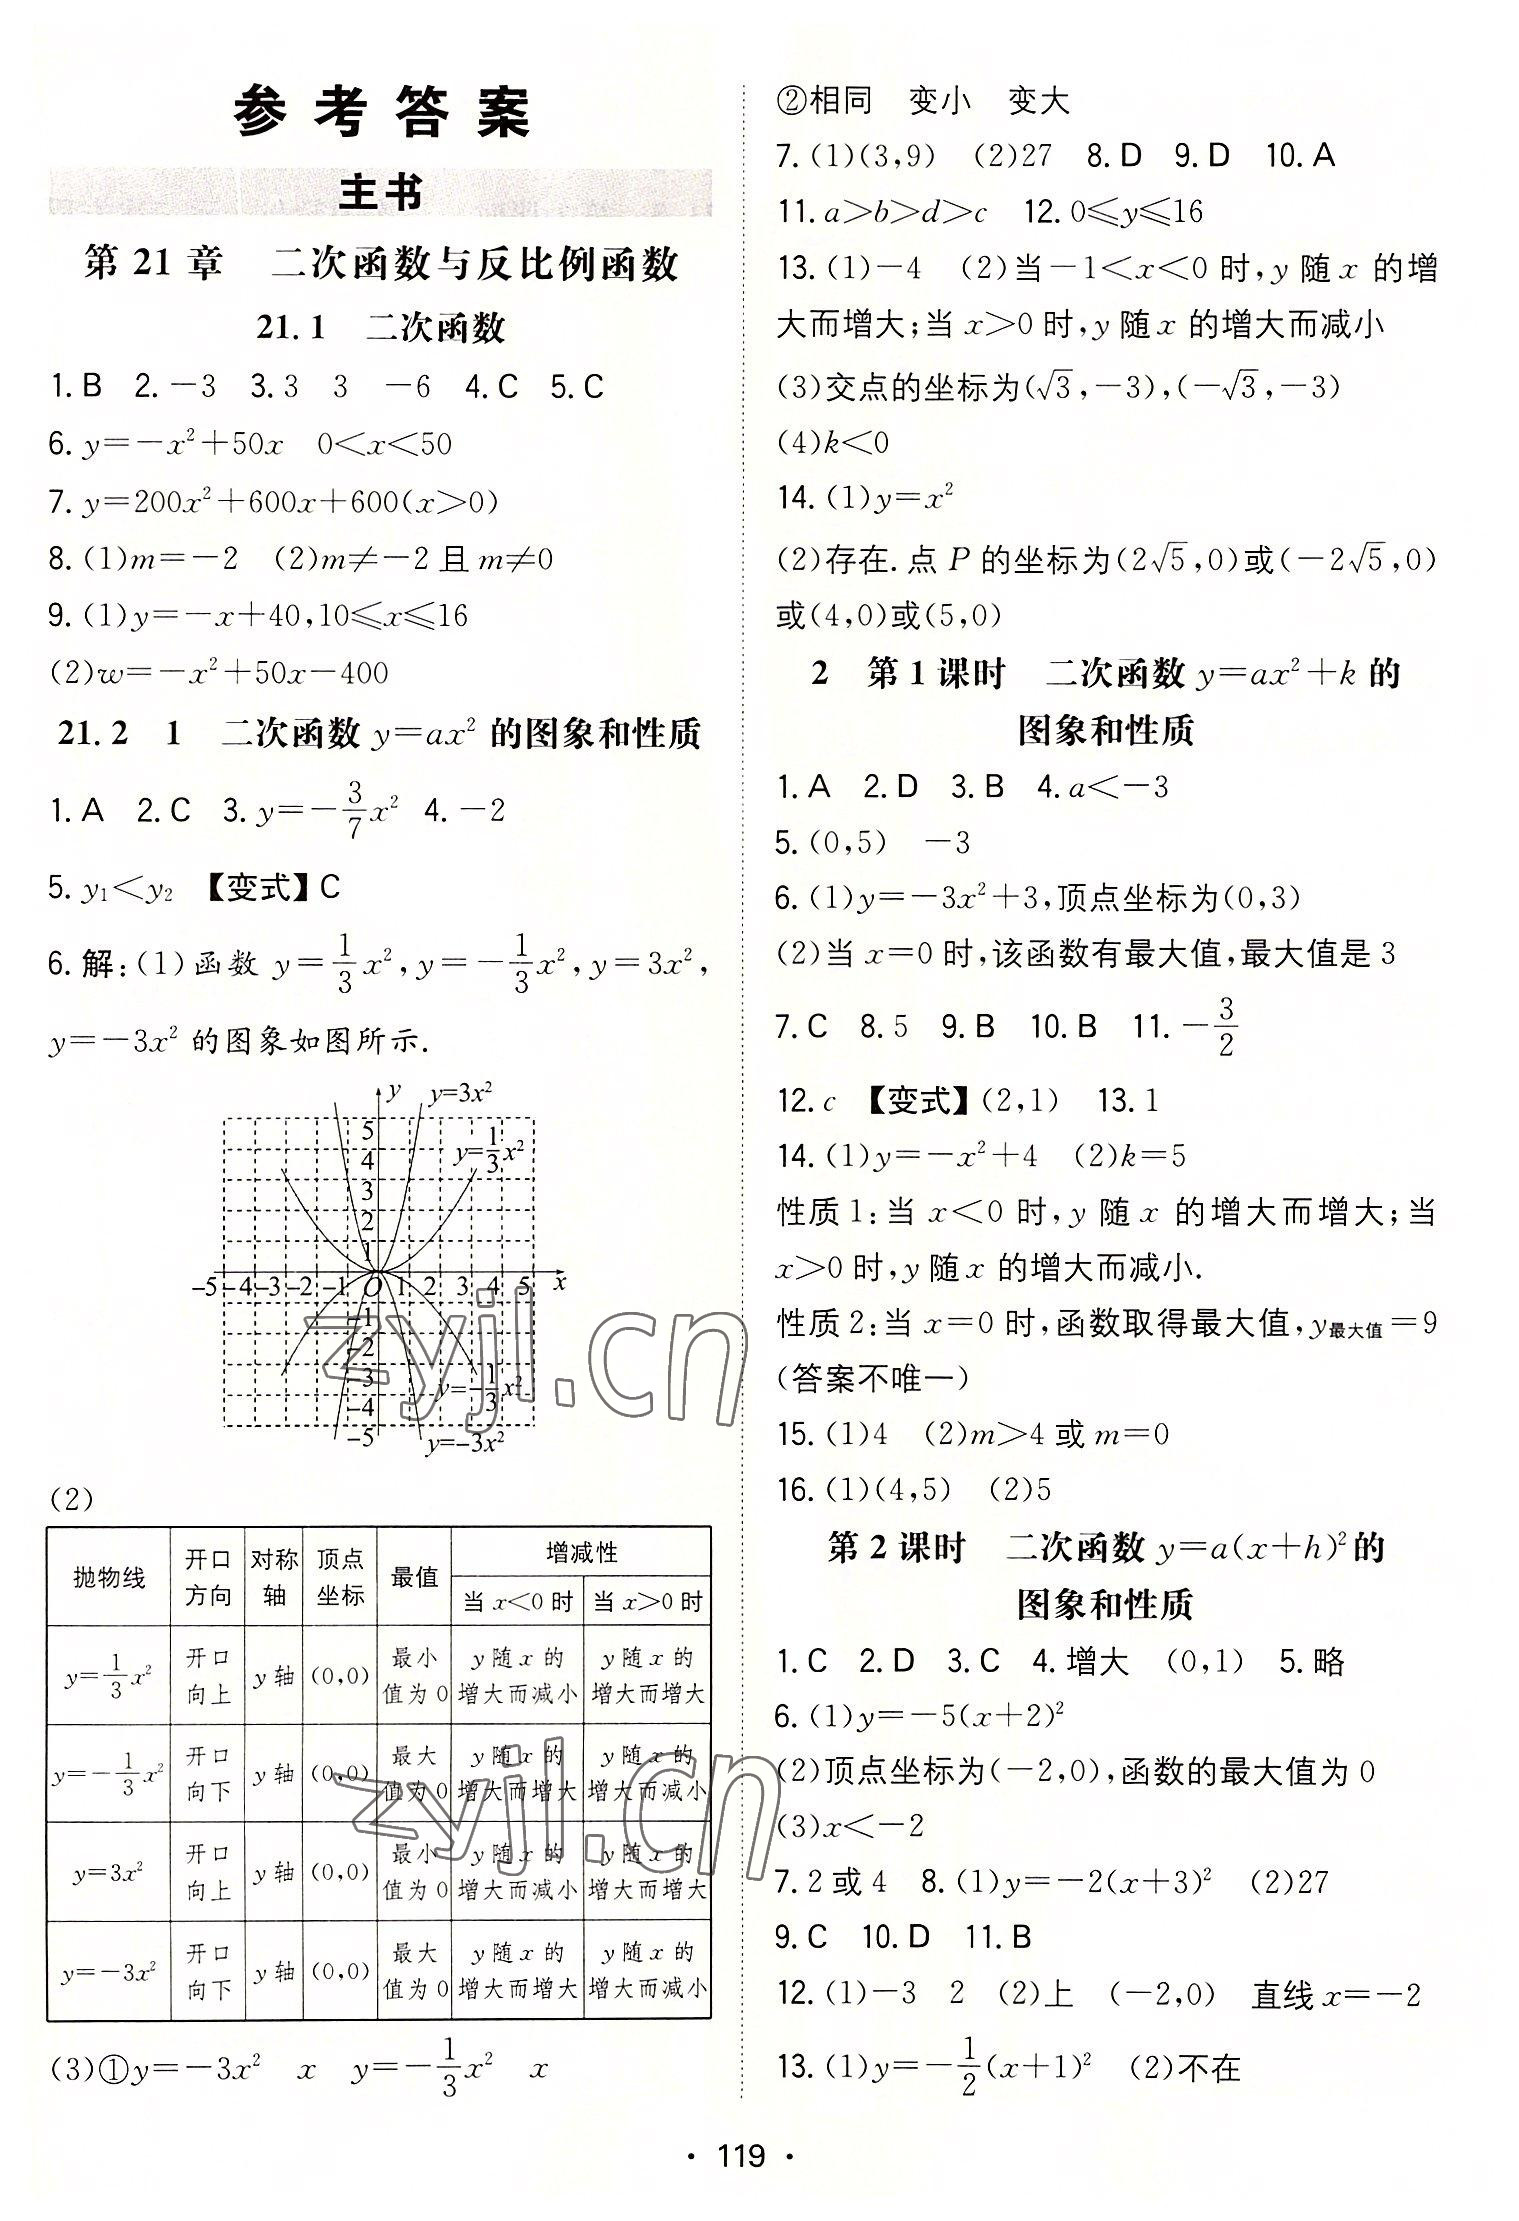 参考答案
主书
第 21 章　二次函数与反比例函数
21.1　二次函数
1.B　2.－3　3.3　3　－6　4.C　5.C
6.y＝－x²＋50x　0＜x＜50
7.y＝200x²＋600x＋600(x＞0)
8.(1)m＝－2　(2)m≠－2且m≠0
9.(1)y＝－x＋40,10≤x≤16
(2)w＝－x²＋50x－400
21.2　1　二次函数 y＝ax² 的图象和性质
1.A　2.C　3.y＝－3/7x²　4.－2
5.y₁＜y₂　【变式】C
6.解:(1)函数 y＝1/3x²,y＝－1/3x²,y＝3x²,
y＝－3x² 的图象如图所示.
y　y=3x²
5
y=1/3x²
4
3
2
1
-5 -4 -3 -2 -1 O 1 2 3 4 5 x
-1
-2
-3
y=-1/3x²
-4
-5　y=-3x²
(2)
抛物线　开口方向　对称轴　顶点坐标　最值　增减性
当 x＜0 时　当 x＞0 时
y＝1/3x²　开口向上　y 轴　(0,0)　最小值为 0　y 随 x 的增大而减小　y 随 x 的增大而增大
y＝－1/3x²　开口向下　y 轴　(0,0)　最大值为 0　y 随 x 的增大而增大　y 随 x 的增大而减小
y＝3x²　开口向上　y 轴　(0,0)　最小值为 0　y 随 x 的增大而减小　y 随 x 的增大而增大
y＝－3x²　开口向下　y 轴　(0,0)　最大值为 0　y 随 x 的增大而增大　y 随 x 的增大而减小
(3)①y＝－3x²　x　y＝－1/3x²　x
②相同　变小　变大
7.(1)(3,9)　(2)27　8.D　9.D　10.A
11.a＞b＞d＞c　12.0≤y≤16
13.(1)－4　(2)当－1＜x＜0时,y 随 x 的增
大而增大;当 x＞0时,y随x 的增大而减小
(3)交点的坐标为(√3,－3),(－√3,－3)
(4)k＜0
14.(1)y＝x²
(2)存在.点 P 的坐标为(2√5,0)或(－2√5,0)
或(4,0)或(5,0)
2　第 1 课时　二次函数 y＝ax²＋k 的
图象和性质
1.A　2.D　3.B　4.a＜－3
5.(0,5)　－3
6.(1)y＝－3x²＋3,顶点坐标为(0,3)
(2)当 x＝0时,该函数有最大值,最大值是 3
7.C　8.5　9.B　10.B　11.－3/2
12.c　【变式】(2,1)　13.1
14.(1)y＝－x²＋4　(2)k＝5
性质1:当 x＜0 时,y 随 x 的增大而增大;当
x＞0时,y随x 的增大而减小.
性质2:当 x＝0时,函数取得最大值,y最大值＝9
(答案不唯一)
15.(1)4　(2)m＞4或m＝0
16.(1)(4,5)　(2)5
第 2 课时　二次函数 y＝a(x＋h)²的
图象和性质
1.C　2.D　3.C　4.增大　(0,1)　5.略
6.(1)y＝－5(x＋2)²
(2)顶点坐标为(－2,0),函数的最大值为 0
(3)x＜－2
7.2或4　8.(1)y＝－2(x＋3)²　(2)27
9.C　10.D　11.B
12.(1)－3　2　(2)上　(－2,0)　直线x＝－2
13.(1)y＝－1/2(x＋1)²　(2)不在
· 119 ·
zyjl.cn
zyjl.cn